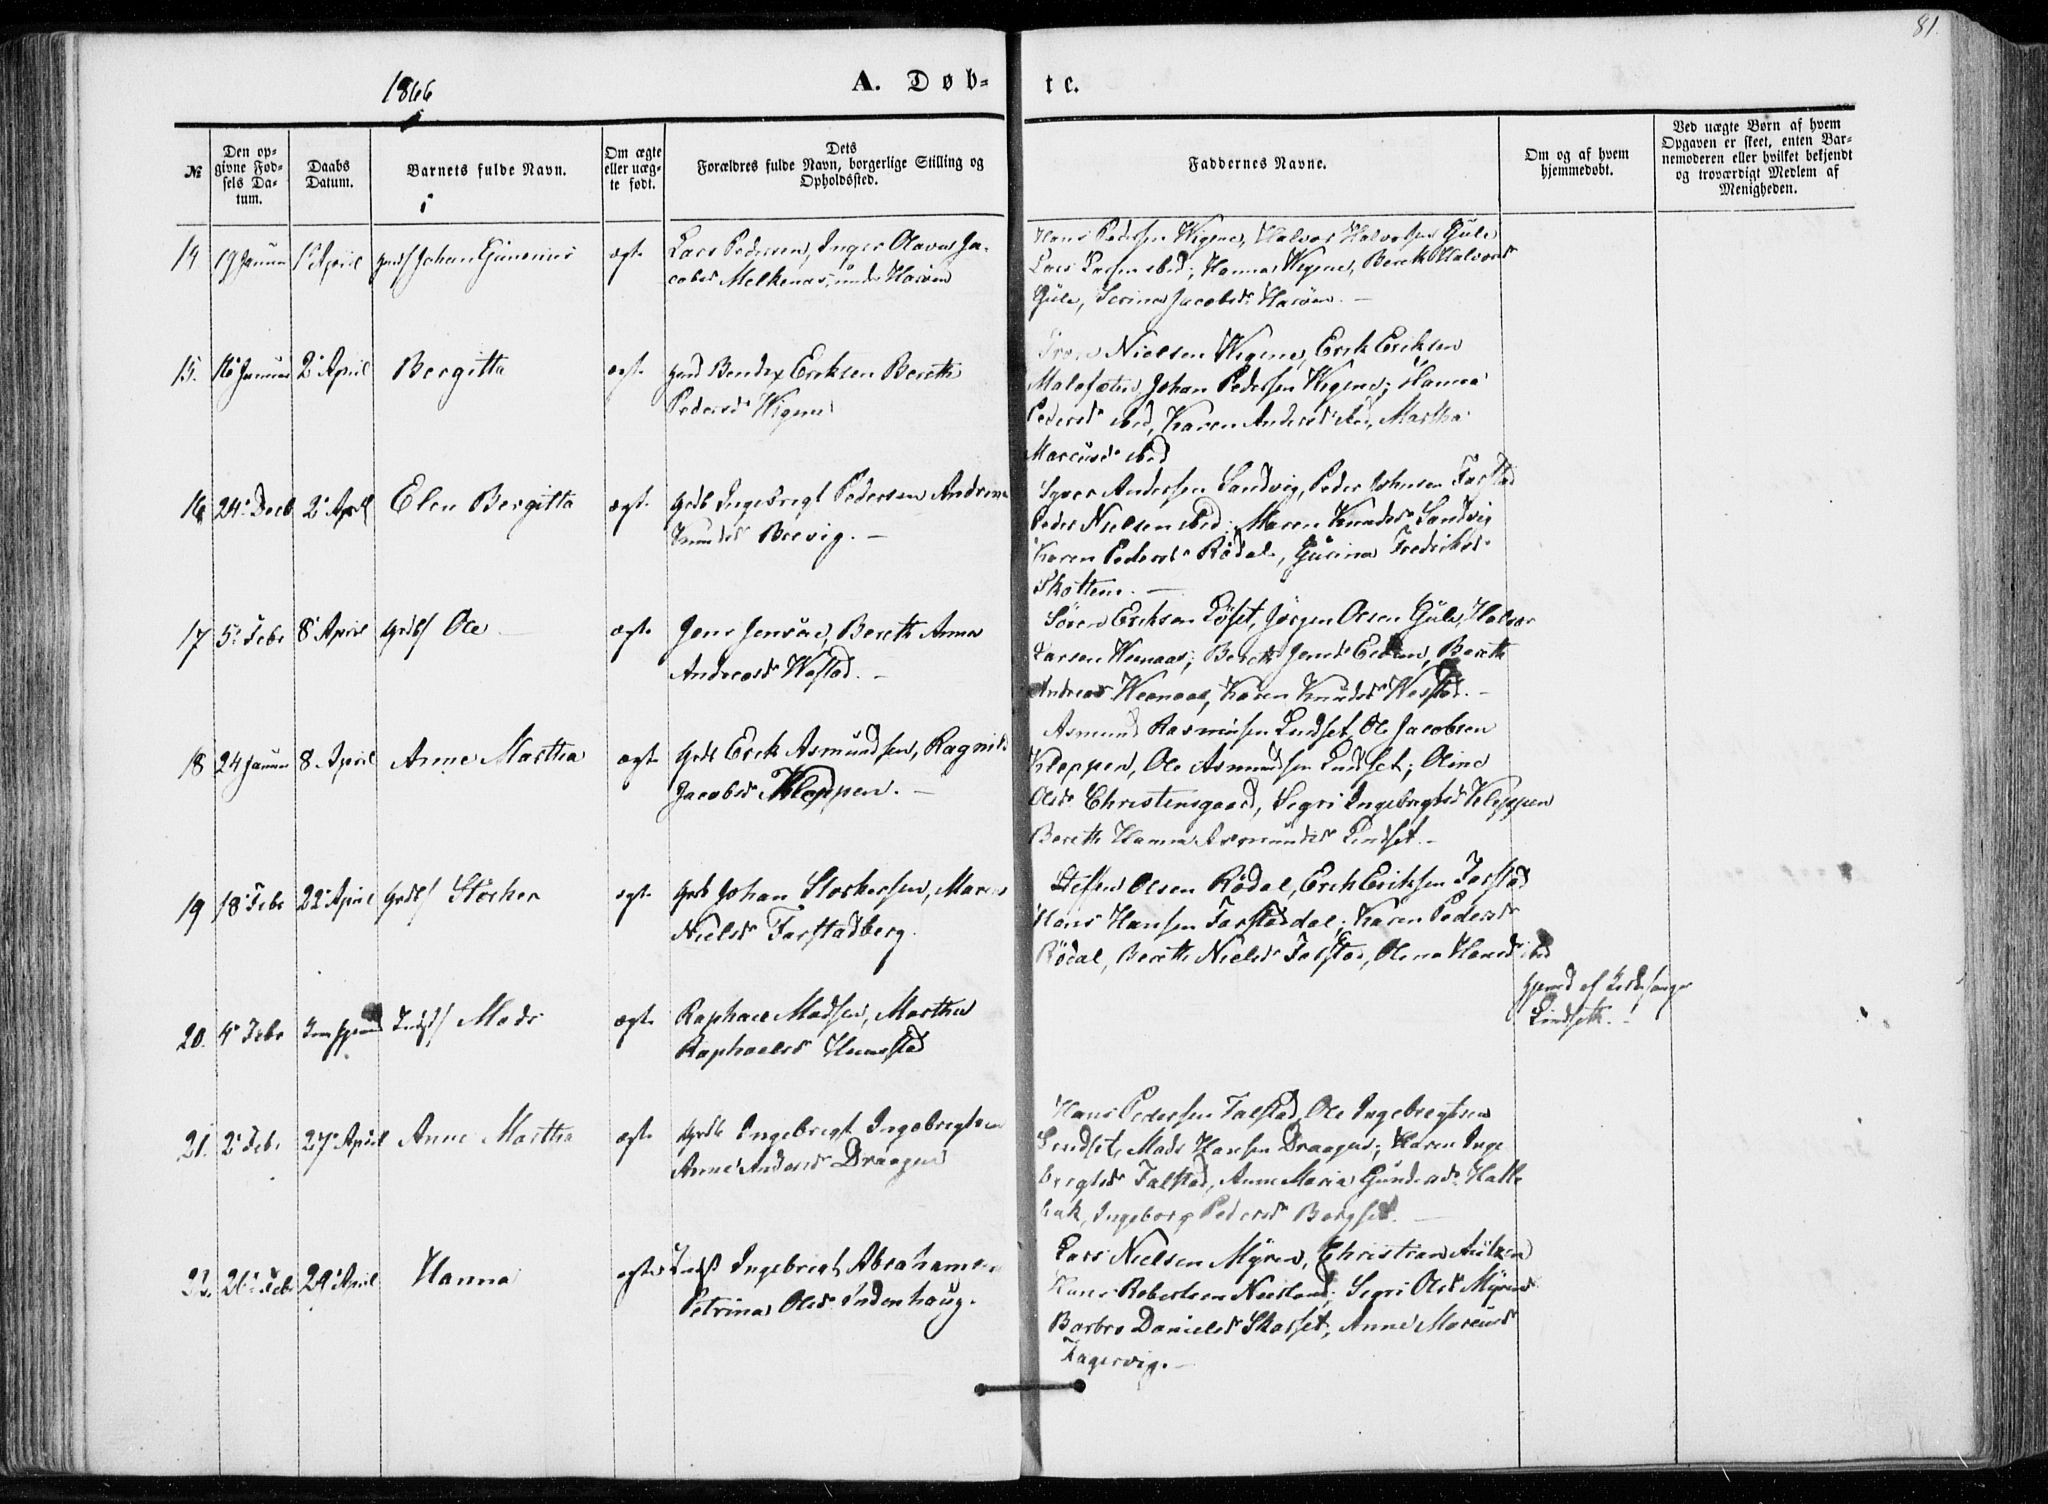 81.
1866
A. Døb=
te.
№
Den op-
givne Fød-
sels Da-
tum.
Daabs
Datum.
Barnets fulde Navn.
Om ægte
eller uæg-
te født.
Dets
Forældres fulde Navn, borgerlige Stilling og
Opholdssted.
Faddernes Navne.
Om og af hvem
hjemmedøbt.
Ved uægte Børn af hvem
Opgaven er skeet, enten Bar-
nemoderen eller hvilket bekjendt
og troværdigt Medlem af
Menigheden.
14 19 Januar 1 April Johan Gunerius ægte
Lars Pedersen, Inger Olava Ja-
cobsd Melkenas, under Harøen
Hans Pedersen Wigene, Halvor Halvorsen Gule
Lars Larsen ibid; Hanna Wigene, Bereth Halvorsd
Gule, Serina Jacobsd. Harøen. —
15. 16 Januar 2 April Bergitta ægte
Bendix Eriksen Bereth
Pedersd Wigene
Nielsen Wigene, Erik Eriksen
Malefoten Johan Pedersen Wigene; Hanna
Pedersd ibid, Karen Andersd ibid, Martha
Marcusd ibid
16 24 Decb 2 April Elen Bergitta ægte
Grdb Ingebregt Pedersen Andrina
Knudsd Brevig. —
Syver Andersen Sandvig, Peder Johnsen Farstad
Peder Nielsen ibid; Maren Knudsd Sandvig
Karen Pedersd Rødal, Gurina Fredriksd
Skotten. —
17 5 Febr 8 April Grdb Ole — ægte
Jens Jensen, Bereth Anna
Andreasd Westad. —
Søren Eriksen Løset, Jørgen Olsen Gule, Halvor
Larsen Weenaas; Bereth Jensd Eidem, Bereth
Andreasd Weenaas, Karen Knudsd Westad. —
18 24 Januar 8 April Anne Martha ægte
Grdb Erik Asmundsen, Ragnild
Jacobsd Kleppen. —
Asmund Rasmusen Lindset, Ole Jacobsen
Kleppen, Ole Asmundsen Lindset; Oline
Olsd Christensgaard, Segri Ingebregtsd Kleppen
Bereth Hanna Asmundsd Lindset. —
19 18 Febr 22 April Grdb Størker ægte
Grdb Johan Storkersen, Maren
Nielsd Farstadberg.
Steffen Olsen Rødal, Erik Eriksen Farstad
Hans Hansen Farstaddal; Karen Pedersd
Rødal, Bereth Nielsd Farstad, Olena Hansd ibid
20. 4 Febr Mads ægte
Raphael Madsen, Martha
Raphaelsd Hunestad
Hjemd af Kirkesanger
Lindseth. —
21. 2 Febr 27 April Anne Martha ægte
Grdb Ingebregt Ingebregtsen
Anne Andersd Draagen
Hans Pedersen Talstad, Ole Ingebregtsen
Lindset, Mads Hansen Draagen; Karen Inge
bregtsd Talstad, Anne Maria Gundersd Halle
bak, Ingeborg Pedersd Bergset. —
22. 26 Febr 29 April Hanna ægte
Indst Ingebregt Abrahamsen
Petrina Olsd Indenhaug.
Lars Nielsen Myren, Christian
Hans Robertsen Neerland; Segri Olsd Myren
Barbro Danielsd Skarset, Anne Marcusd
Fagervig. —